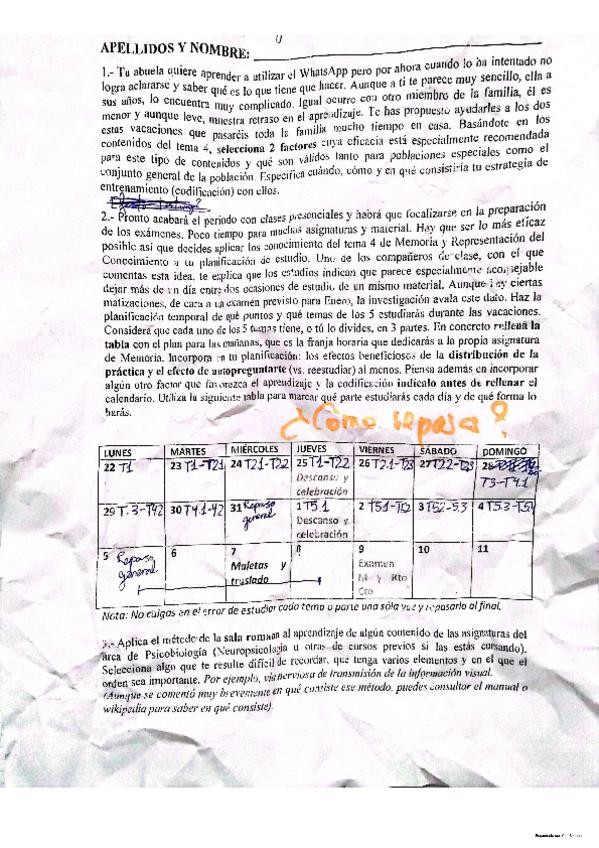 APELLIDOS Y NOMBRE:
1.- Tu abuela quiere aprender a utilizar el WhatsApp pero por ahora cuando lo ha intentado no
logra aclararse y saber qué es lo que tiene que hacer. Aunque a ti te parece muy sencillo, ella a
sus años, lo encuentra muy complicado. Igual ocurre con otro miembro de la familia, él es
menor y aunque leve, muestra retraso en el aprendizaje. Te has propuesto ayudarles a los dos
estas vacaciones que pasaréis toda la familia mucho tiempo en casa. Basándote en los
contenidos del tema 4, selecciona 2 factores cuya eficacia está especialmente recomendada
para este tipo de contenidos y qué son válidos tanto para poblaciones especiales como el
conjunto general de la población. Especifica cuándo, cómo y en qué consistiría tu estrategia de
entrenamiento (codificación) con ellos.
2.- Pronto acabará el periodo con clases presenciales y habrá que focalizarse en la preparación
de los exámenes. Poco tiempo para muchas asignaturas y material. Hay que ser lo más eficaz
posible así que decides aplicar los conocimiento del tema 4 de Memoria y Representación del
Conocimiento a tu planificación de estudio. Uno de los compañeros de clase, con el que
comentas esta idea, te explica que los estudios indican que parece especialmente aconsejable
dejar más de un día entre dos ocasiones de estudio de un mismo material. Aunque hay ciertas
matizaciones, de cara a la examen previsto para Enero, la investigación avala este dato. Haz la
planificación temporal de qué puntos y qué temas de los 5 estudiarás durante las vacaciones.
Considera que cada uno de los 5 temas tiene, o tú lo divides, en 3 partes. En concreto rellena la
tabla con el plan para las mañanas, que es la franja horaria que dedicarás a la propia asignatura
de Memoria. Incorpora en tu planificación: los efectos beneficiosos de la distribución de la
práctica y el efecto de autopreguntarte (vs. reestudiar) al menos. Piensa además en incorporar
algún otro factor que favorezca el aprendizaje y la codificación indícalo antes de rellenar el
calendario. Utiliza la siguiente tabla para marcar qué parte estudiarás cada día y de qué forma lo
harás.
¿Cómo repasa?
LUNES MARTES MIÉRCOLES JUEVES VIERNES SÁBADO DOMINGO
22 T1 23 T1-T21 24 T2.1-T22 25 T1-T22 26 T2.1-T23 27 T22-T23 28
Descanso y
celebración
T3-T4.1
29 T.3-T42 30 T4.1-42 31 Repaso general 1 T5.1 2 T5.1-T52 3 T52-5.3 4 T5.3-T51
Descanso y
celebración
5 Repaso general 6 7 8 9 10 11
Maletas y
traslado
Examen
M y Rto
Cto
Nota: No caigas en el error de estudiar cada tema o parte una sóla vez y repasarlo al final.
3.- Aplica el método de la sala romana al aprendizaje de algún contenido de las asignaturas del
área de Psicobiología (Neuropsicología u otras de cursos previos si las estás cursando).
Selecciona algo que te resulte difícil de recordar, que tenga varios elementos y en el que el
orden sea importante. Por ejemplo, vía nerviosa de transmisión de la información visual.
(Aunque se comentó muy brevemente en qué consiste ese método, puedes consultar el manual o
wikipedia para saber en qué consiste).